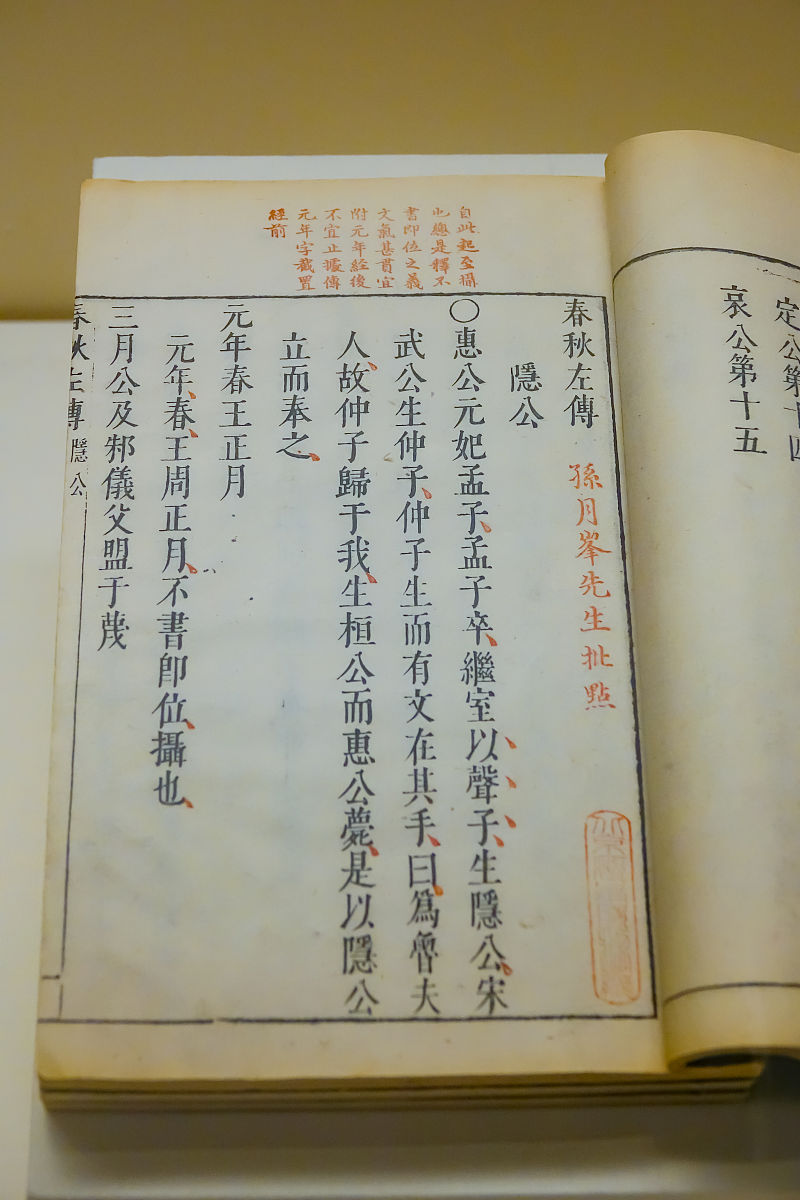 定公第十四
哀公第十五
春秋左傳
孫月峯先生批點
隱公
自此起至攝
也總是釋不
書即位之義
文氣甚貫宜
附元年經後
不宜止據傳
元年字截置
經前
〇惠公元妃孟子、孟子卒、繼室以聲子、生隱公、宋
武公生仲子、仲子生而有文在其手、曰、爲魯夫
人、故仲子歸于我、生桓公而惠公薨、是以隱公
立而奉之、
元年春王正月
元年、春、王周正月、不書卽位、攝也、
三月公及邾儀父盟于蔑
春秋左傳 隱公
一